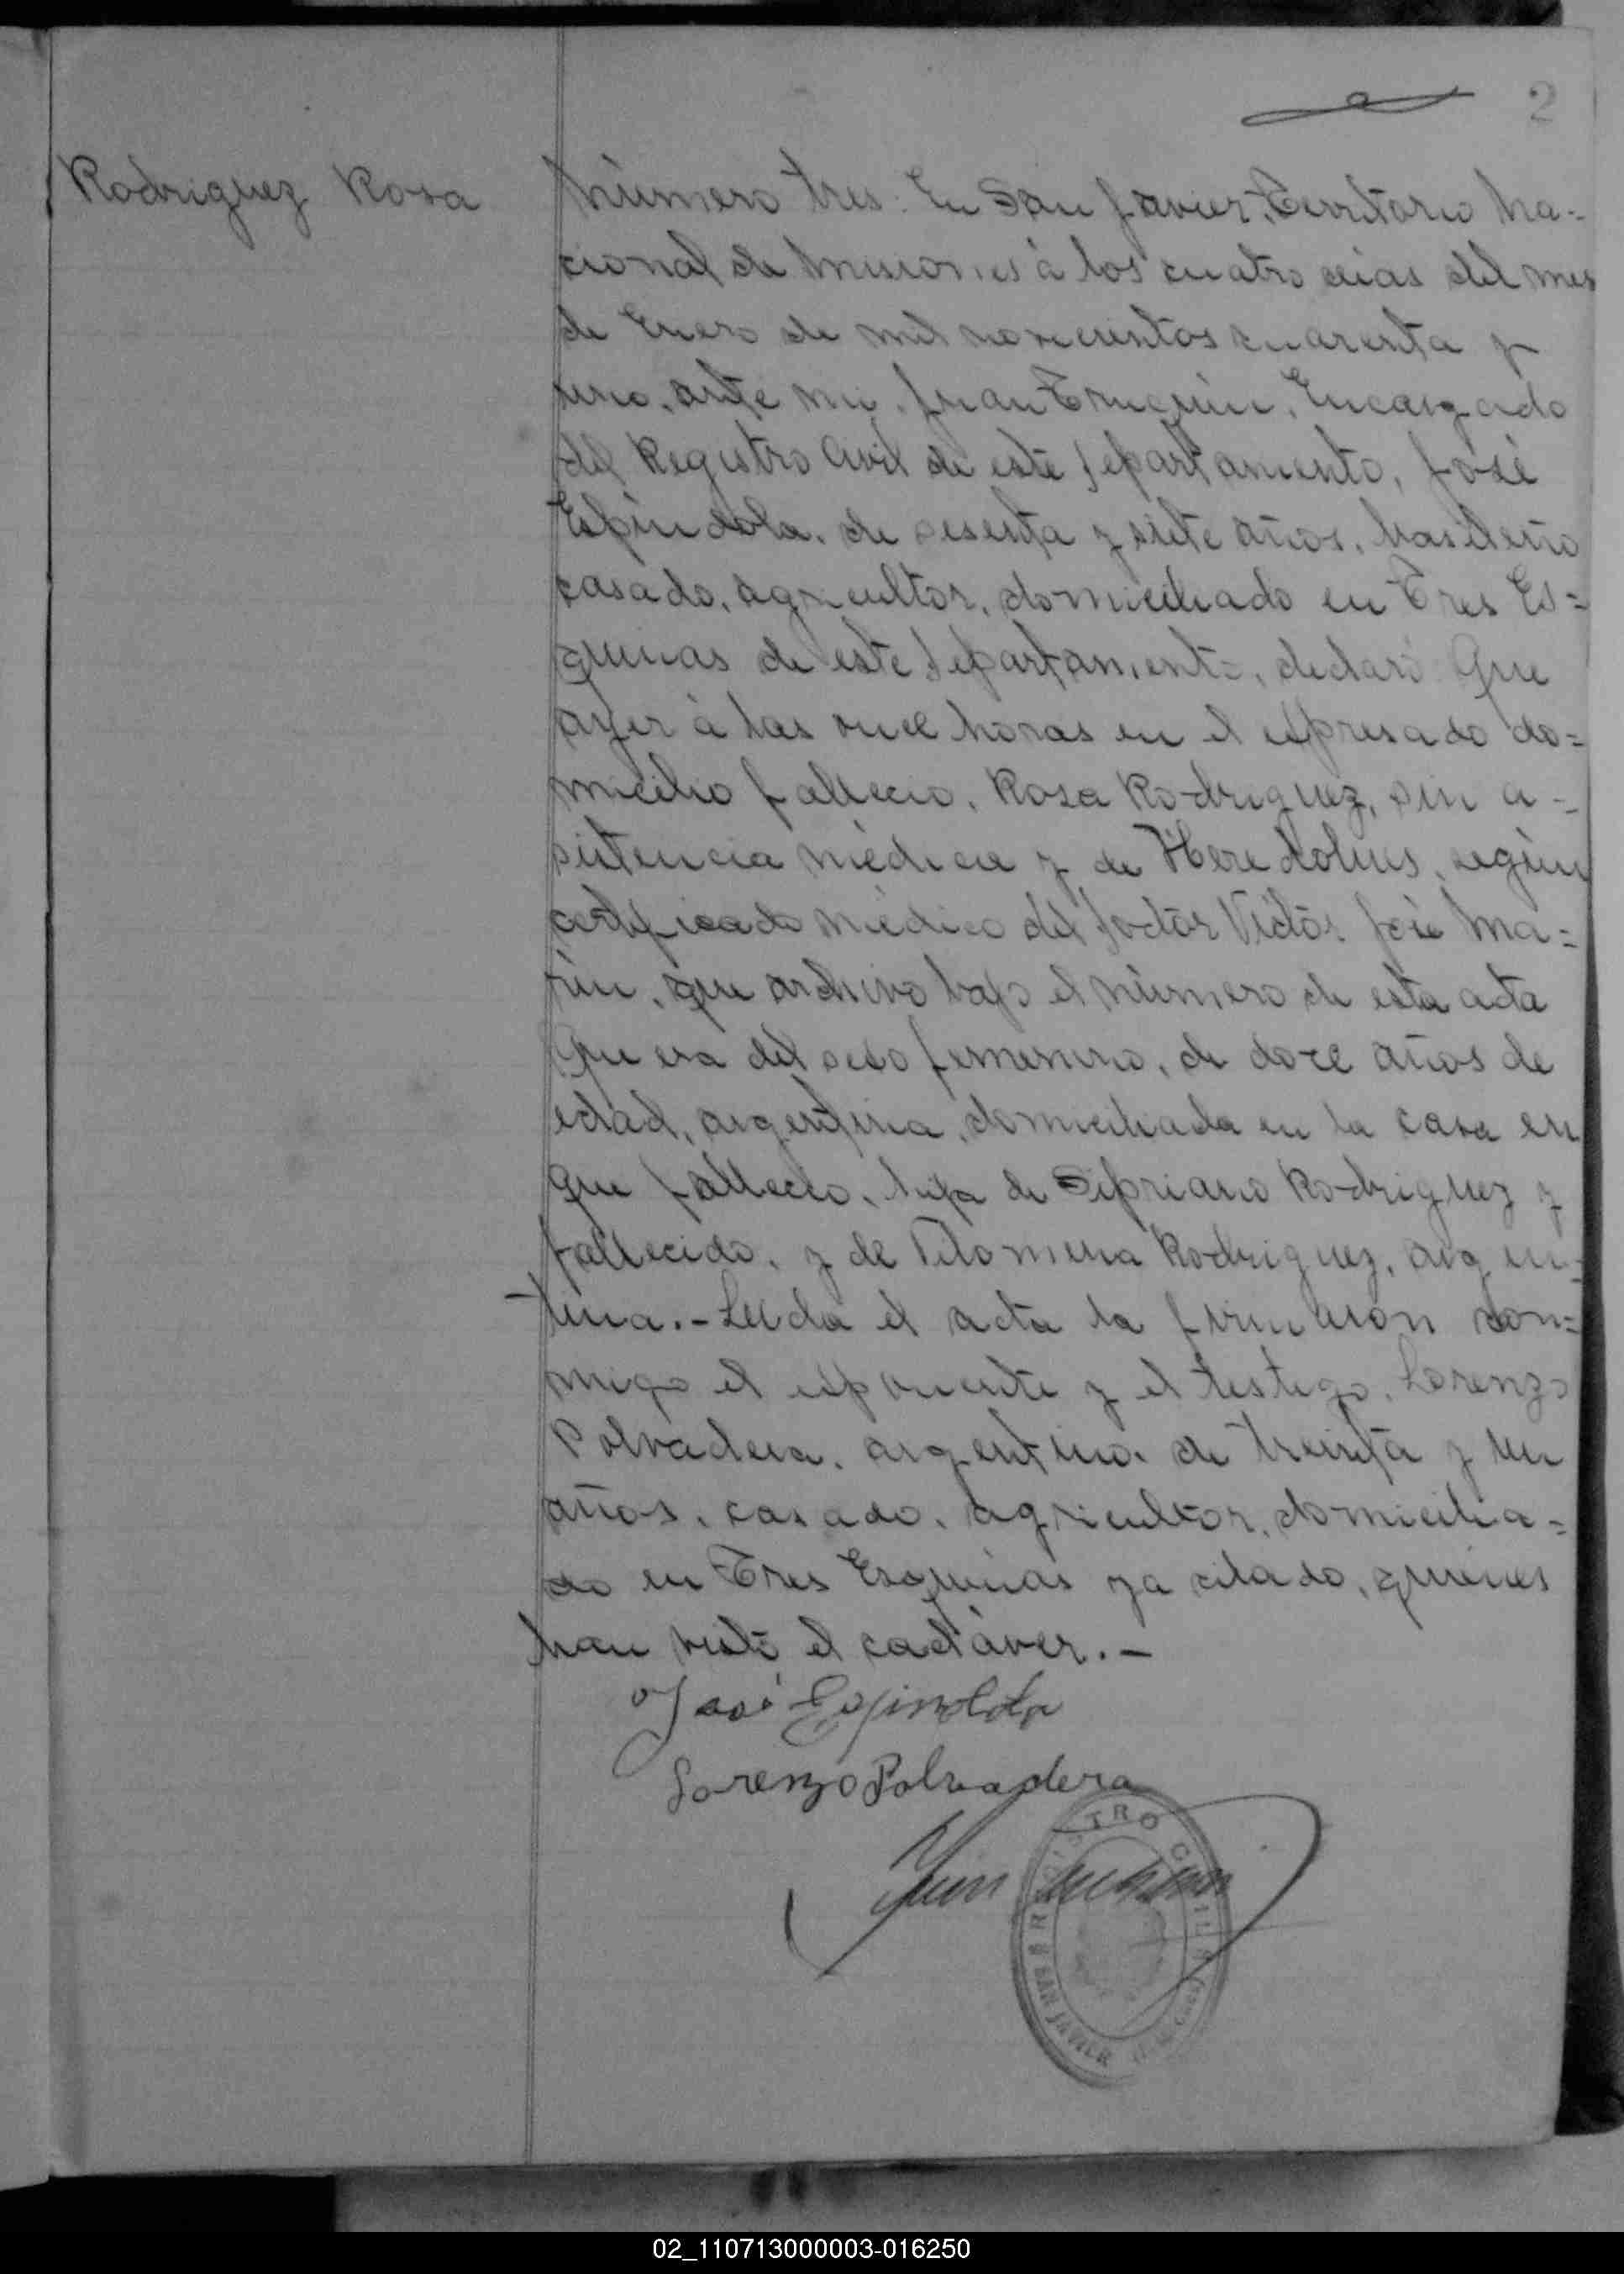 2
Rodriguez Rosa
Número tres: En San Javier, Territorio Na=
cional de Misiones á los cuatro dias del mes
de Enero de mil novecientos cuarenta y
uno, ante mi, Juan, Encargado
del Registro Civil de este Departamento, José
Espindola, de sesenta y siete años, brasileño
casado, agricultor, domiciliado en Tres Es=
quinas de este Departamento, declaró: Que
ayer á las once horas en el expresado do=
micilio falleció, Rosa Rodriguez, sin a=
sistencia médica y de, según
certificado médico del Doctor Victor José Ma=
rin, que archivo bajo el número de esta acta
Que era del sexo femenino, de doce años de
edad, argentina, domiciliada en la casa en
que falleció, hija de Sipriano Rodriguez y
fallecido, y de Filomena Rodriguez, argen=
tina.- Leida el acta la firmaron con=
migo el exponente y el testigo, Lorenzo
Polvadera, argentino, de treinta y un
años, casado, agricultor, domicilia=
do en Tres Esquinas ya citado, quienes
han visto el cadáver.-
José Espindola
Lorenzo Polvadera
Juan
REGISTRO CIVIL
SAN JAVIER
02_110713000003-016250